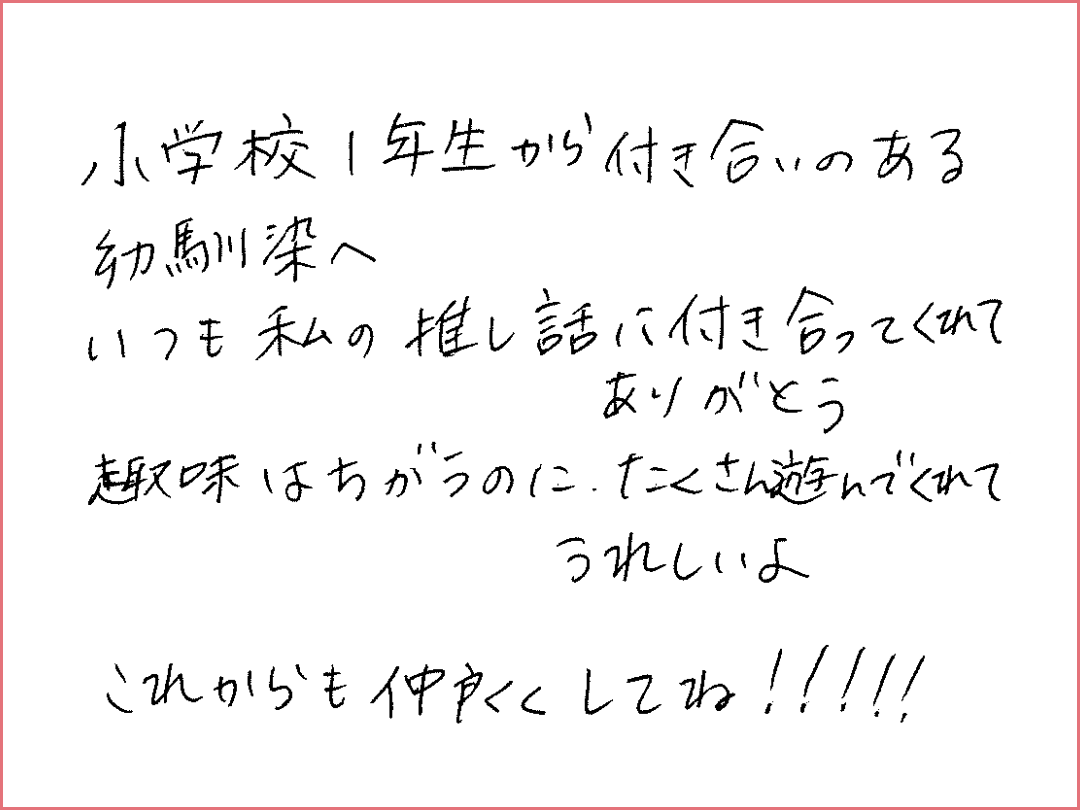 小学校1年生から付き合いのある
幼馴染へ
いつも私の推し話に付き合ってくれて
ありがとう
趣味はちがうのに、たくさん遊んでくれて
うれしいよ
これからも仲良くしてね!!!!!